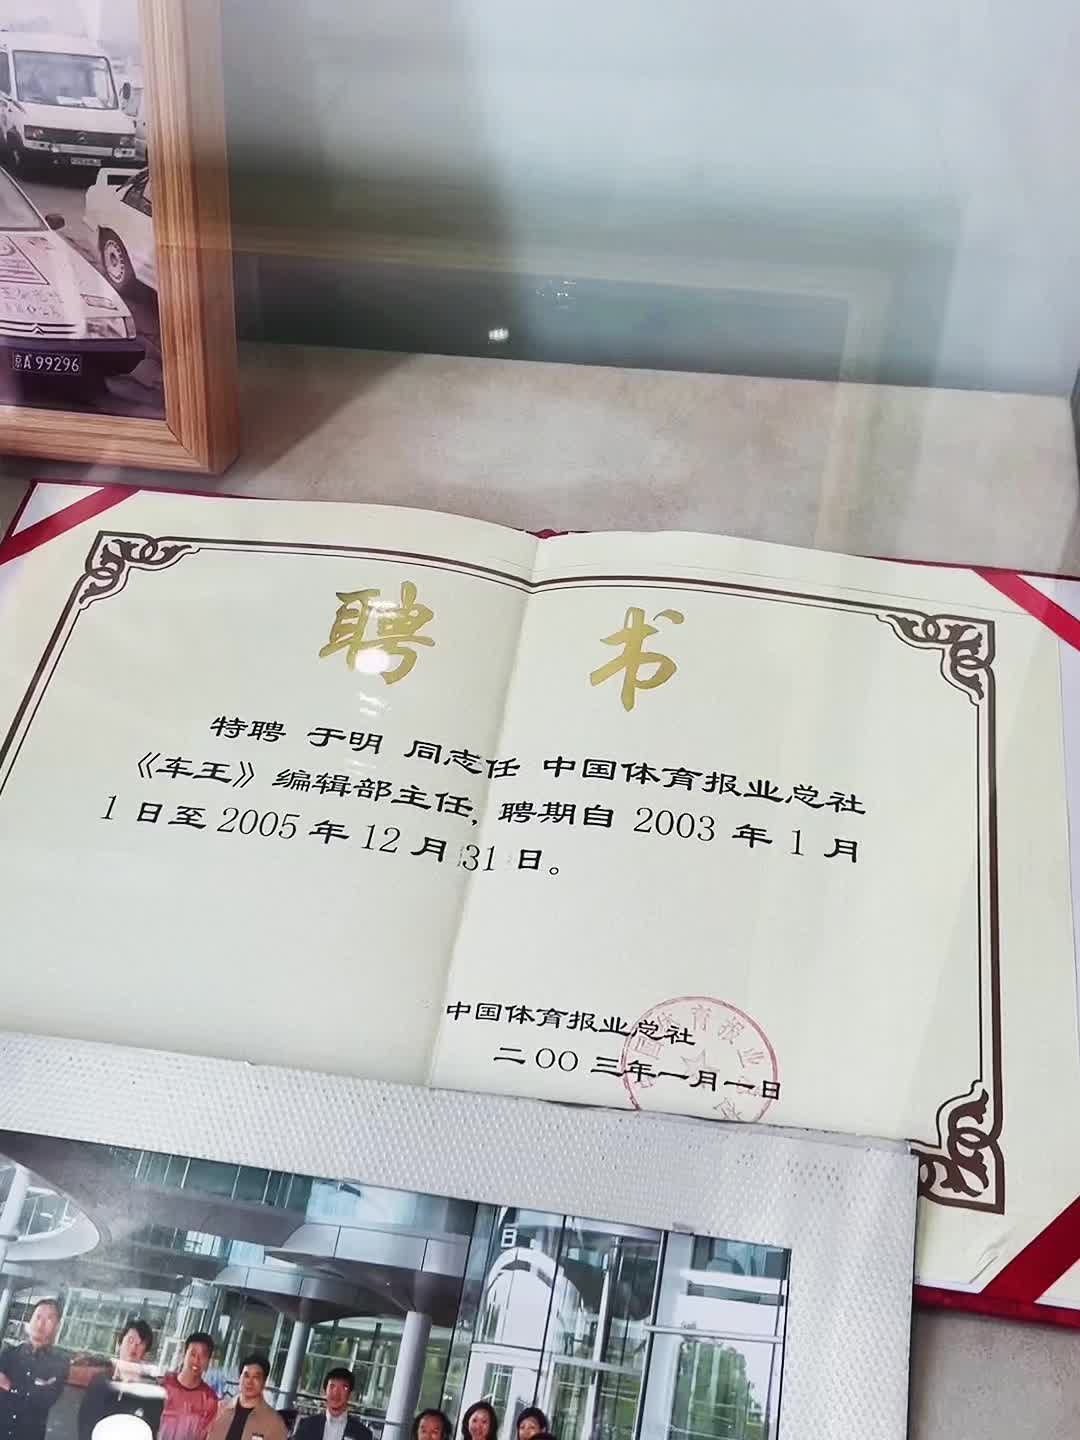 京A 99296
聘 书
特聘 于明 同志任 中国体育报业总社
《车王》编辑部主任，聘期自 2003 年 1 月
1 日至 2005 年 12 月 31 日。
中国体育报业总社
二〇〇三年一月一日